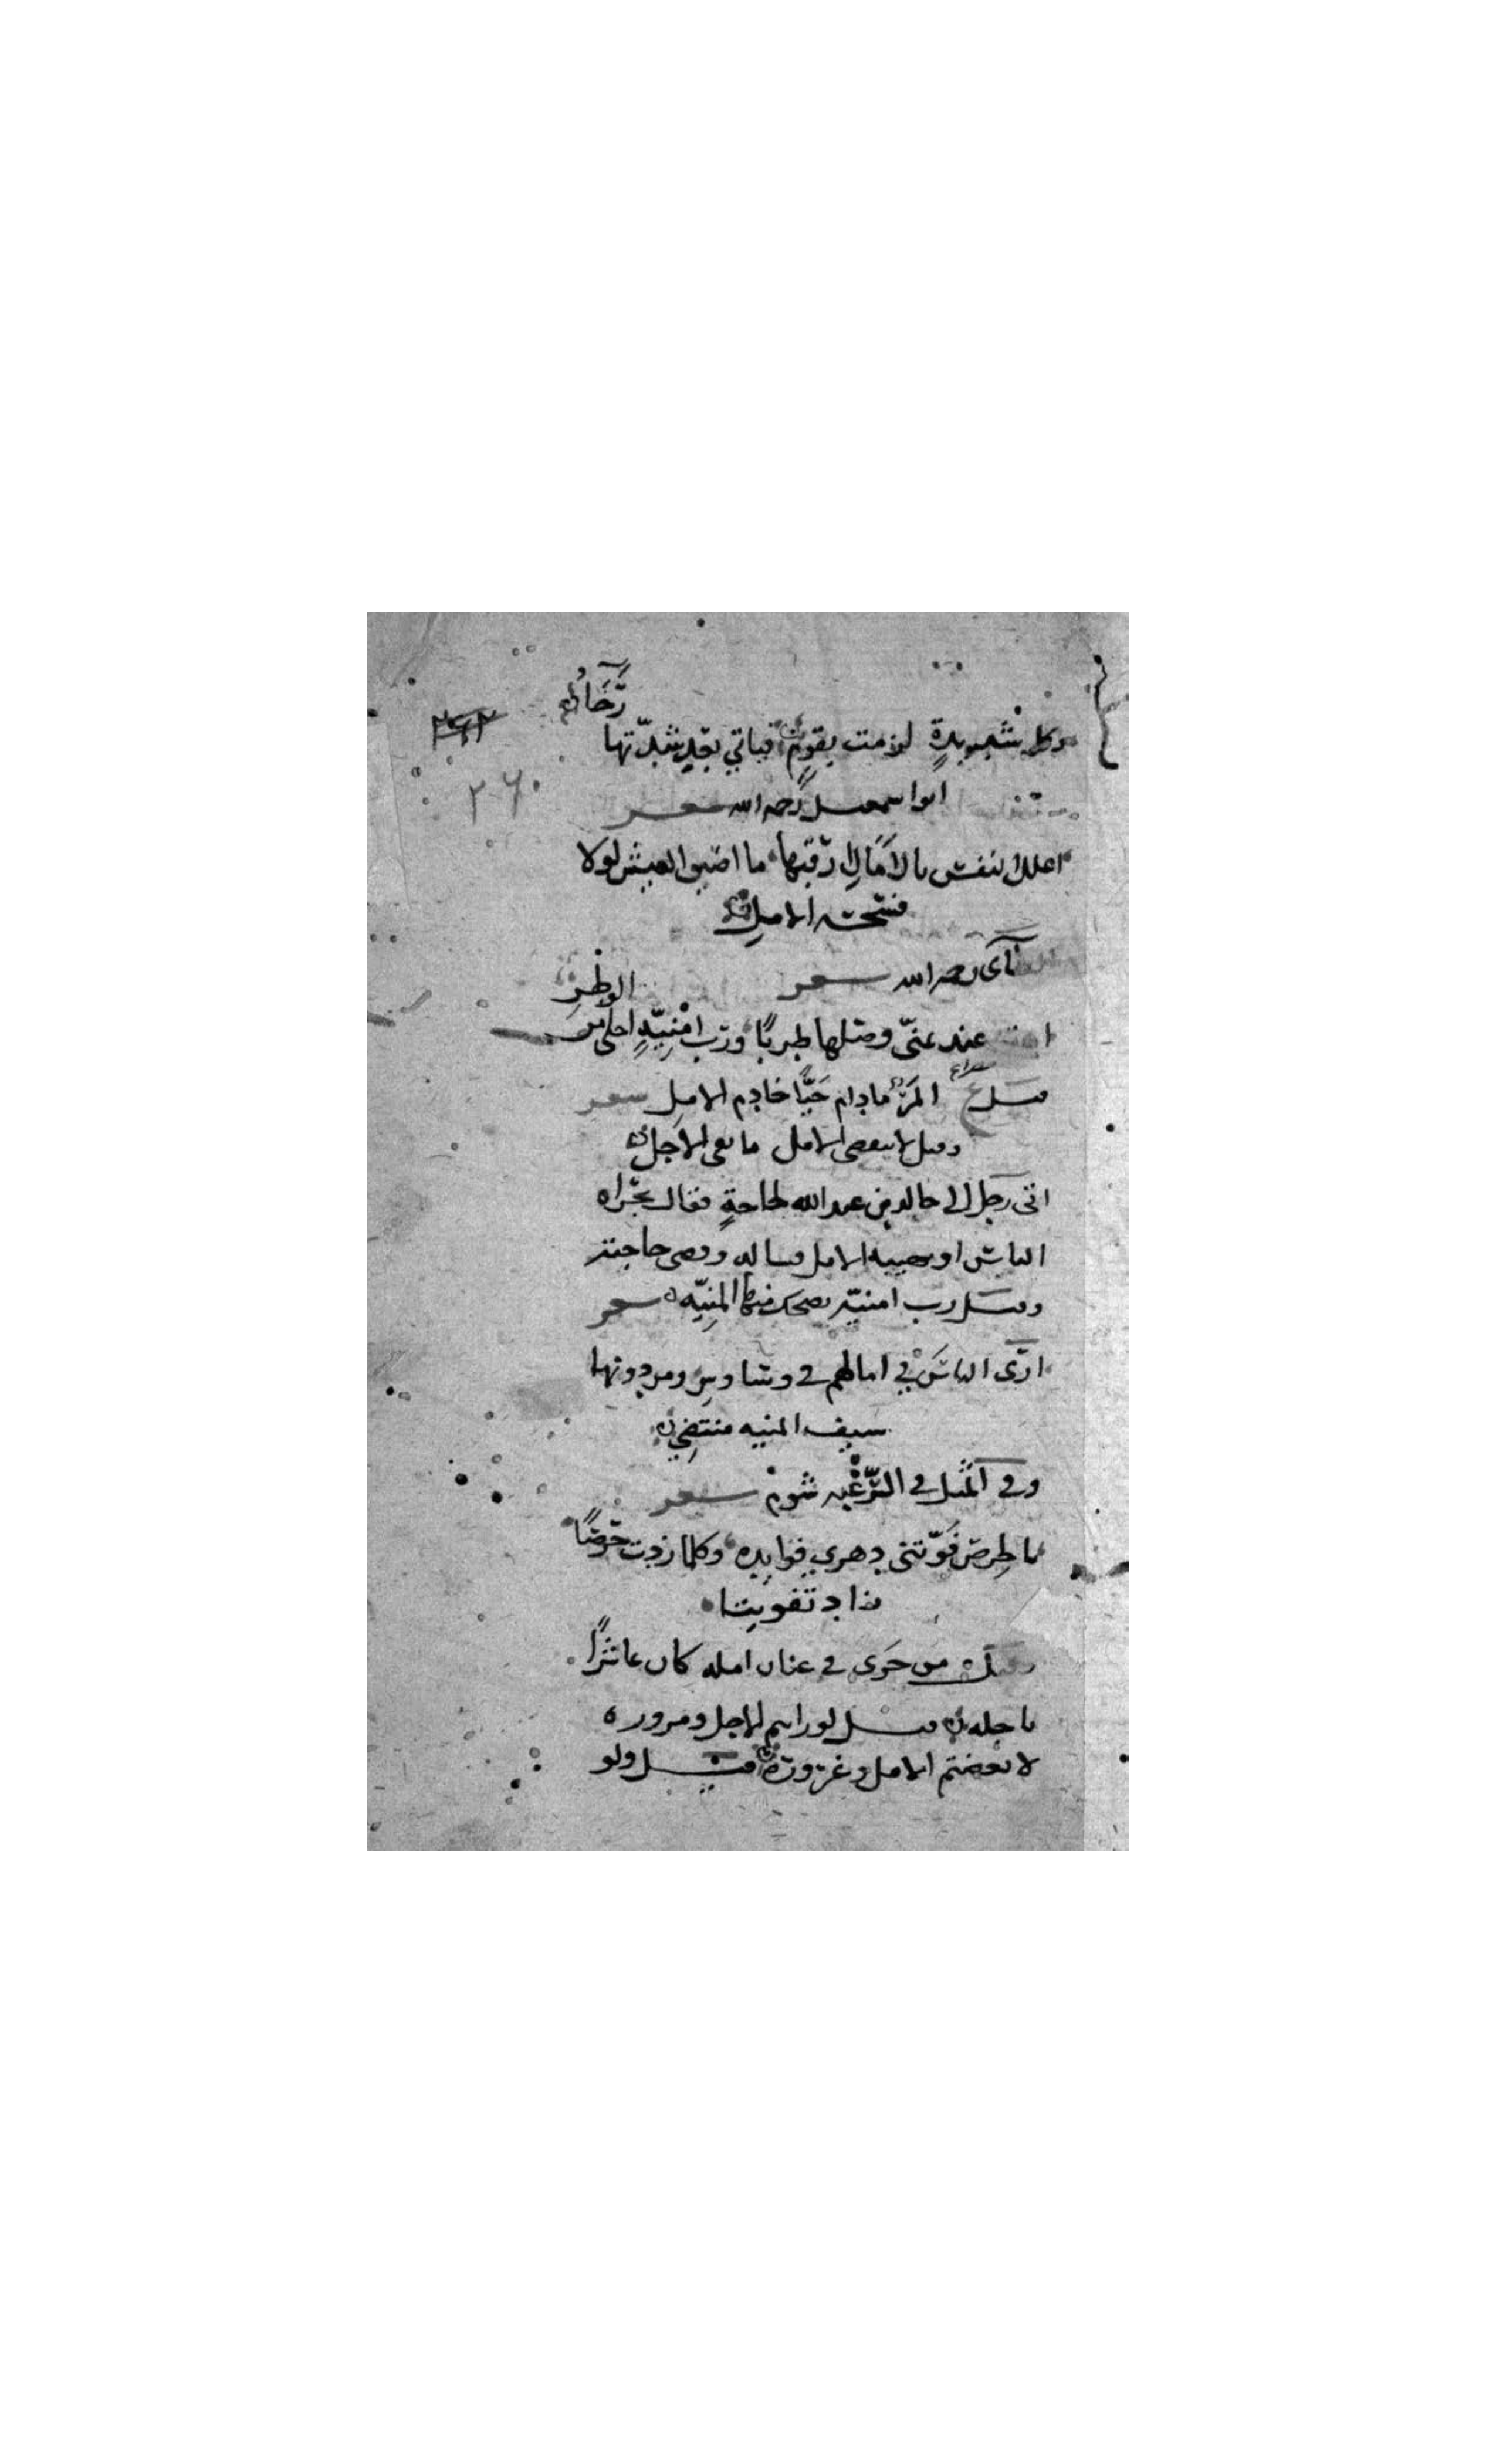 رخاء
وكل شديدة لزمت بقوم فياتي بعد شدتها
٢٦٠
ابو اسمعيل رحمه الله شعر
اعلل النفس بالامال ارقبها ما اضيق العيش لولا
فسحة الامل
رحمه الله شعر
الوطر
عند عني وصلها طربا ورب امنية احلى من
قيل المرء مادام حيا خادم الامل شعر
وقيل لا ينقضي الامل ما بقي الاجل
اتى رجل الى خالد بن عبد الله لحاجة فقال
الناس او الامل وقضى حاجته
وقيل رب امنية يضحك منها المنية شعر
ارى الناس في امالهم في وساوس ومن دونها
سيف المنية منتضي
وفي المثل في الرغبه شوم شعر
بالحرص فوتني دهري فوايده وكلما زدت حرصا
زاد تفويتا
وقيل من جرى في عنان امله كان عاثرا
باجله قيل لو رايتم الاجل ومروره
لابغضتم الامل وغروره قيل ولو